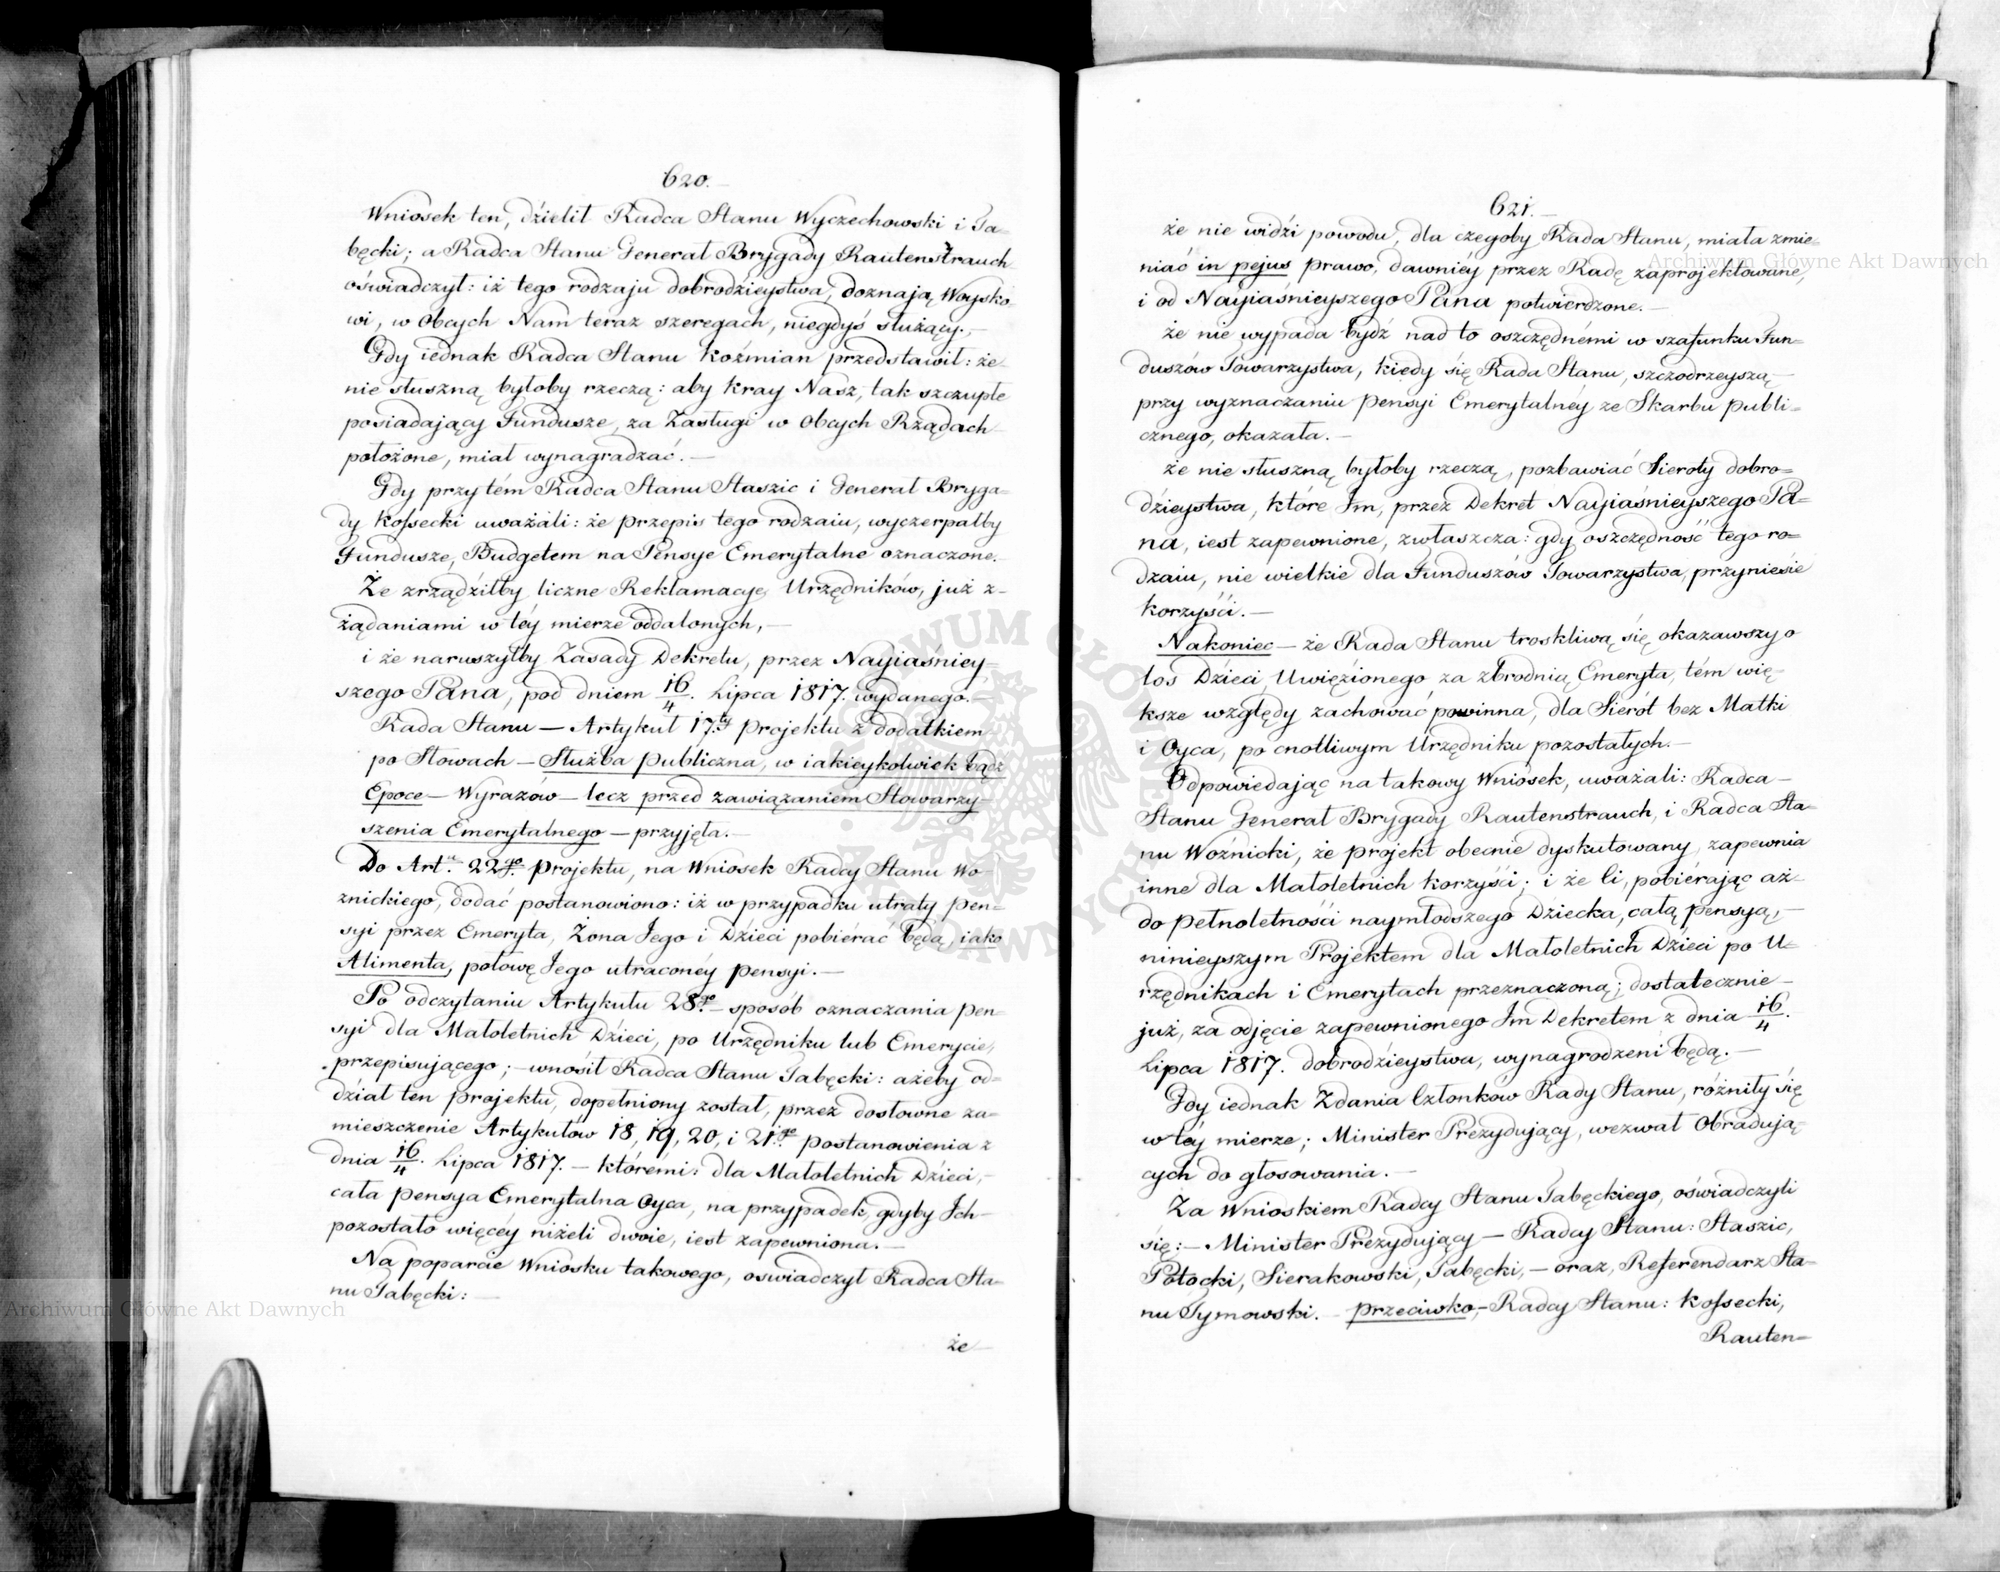 620.
Wniosek ten, dzielił Radca Stanu Wyczechowski i Ta=
bęcki; a Radca Stanu Generał Brygady Rautenstrauch
oświadczył: iż tego rodzaju dobrodzieystwa, doznają Woysko
wi, w Obcych Nam teraz szeregach, niegdyś służący.—
Gdy iednak Radca Stanu Koźmian przedstawił: że
nie słuszną byłoby rzeczą: aby Kray Nasz, tak szczupłe
posiadający Fundusze, za Zasługi w Obcych Rządach
położone, miał wynagradzać.—
Gdy przytém Radca Stanu Staszic i Generał Bryga=
dy Kossecki uważali: że przepis tego rodzaiu, wyczerpałby
Fundusze, Budgetem na Pensye Emerytalne oznaczone.
Że zrządziłby liczne Reklamacye, Urzędników, już z=
żądaniami w téy mierze oddalonych,—
i że naruszyłby Zasady Dekretu, przez Nayiaśniey=
szego Pana, pod dniem 16/4. Lipca 1817. wydanego.—
Rada Stanu — Artykuł 17.ty projektu z dodatkiem
po Słowach — Służba publiczna, w iakieykolwiek bądź
Epoce — Wyrazów — lecz przed zawiązaniem Stowarzy=
szenia Emerytalnego — przyjęła.—
Do Art. 22go. projektu, na Wniosek Radcy Stanu Wo=
znickiego, dodać postanowiono: iż w przypadku utraty pen=
syi przez Emeryta, Żona Jego i Dzieci pobiérać będą, iako
Alimenta, połowę Jego utraconéy pensyi.—
Po odczytaniu Artykułu 28.go — sposób oznaczania pen=
syi dla Małoletnich Dzieci, po Urzędniku lub Emerycie,
przepisującego; — wnosił Radca Stanu Tabęcki: ażeby od=
dział ten projektu, dopełniony został, przez dosłowne za=
mieszczenie Artykułów 18, 19, 20, i 21.go postanowienia z
dnia 16/4. Lipca 1817. — któremi: dla Małoletnich Dzieci,—
cała pensya Emerytalna Oyca, na przypadek, gdyby Ich
pozostało więcéy niżeli dwoie, iest zapewniona.—
Na poparcie Wniosku takowego, oswiadczył Radca Sta=
nu Tabęcki:—
że
621.
że nie widzi powodu, dla czegoby Rada Stanu, miała zmie=
niać in pejus prawo, dawniey przez Radę zaprojektowane,
i od Nayiaśnieyszego Pana potwierdzone.—
że nie wypada bydź nad to oszczędnémi w szafunku Fun=
duszów Towarzystwa, kiedy się Rada Stanu, szczodrzeyszą—
przy wyznaczaniu pensyi Emerytalnéy ze Skarbu publi=
cznego, okazała.—
że nie słuszną byłoby rzeczą, pozbawiać Sieroty dobro=
dzieystwa, które Im, przez Dekret Nayiaśnieyszego Pa=
na, iest zapewnione, zwłaszcza: gdy oszczędność tego ro=
dzaiu, nie wielkie dla Funduszów Towarzystwa, przyniesie
korzyści.—
Nakoniec — że Rada Stanu troskliwą się okazawszy o
los Dzieci, Uwięzionego za zbrodnią Emeryta, tém wię=
ksze względy zachować powinna, dla Sierót bez Matki
i Oyca, po cnotliwym Urzędniku pozostałych.—
Odpowiedając na takowy Wniosek, uważali: Radca—
Stanu Generał Brygady Rautenstrauch, i Radca Sta=
nu Woźnicki, że projekt obecnie dyskutowany, zapewnia
inne dla Małoletnich korzyści; i że ci, pobiérając aż—
do pełnoletności naymłodszego Dziecka, całą pensyą,—
ninieyszym Projektem dla Małoletnich Dzieci po U=
rzędnikach i Emerytach przeznaczoną; dostatecznie—
już, za odjęcie zapewnionego Im Dekretem z dnia 16/4.
Lipca 1817. dobrodzieystwa, wynagrodzeni będą.—
Gdy iednak Zdania Członków Rady Stanu, różniły się
w téy mierze; Minister Prezydujący, wezwał Obradują=
cych do głosowania.—
Za Wnioskiem Radcy Stanu Tabęckiego, oświadczyli
się: — Minister Prezydujący — Radcy Stanu: Staszic,
Potocki, Sierakowski, Tabęcki, — oraz, Referendarz Sta=
nu Tymowski. — przeciwko, — Radcy Stanu: Kossecki,
Rauten=
Archiwum Główne Akt Dawnych
Archiwum Główne Akt Dawnych
ARCHIWUM GŁÓWNE AKT DAWNYCH